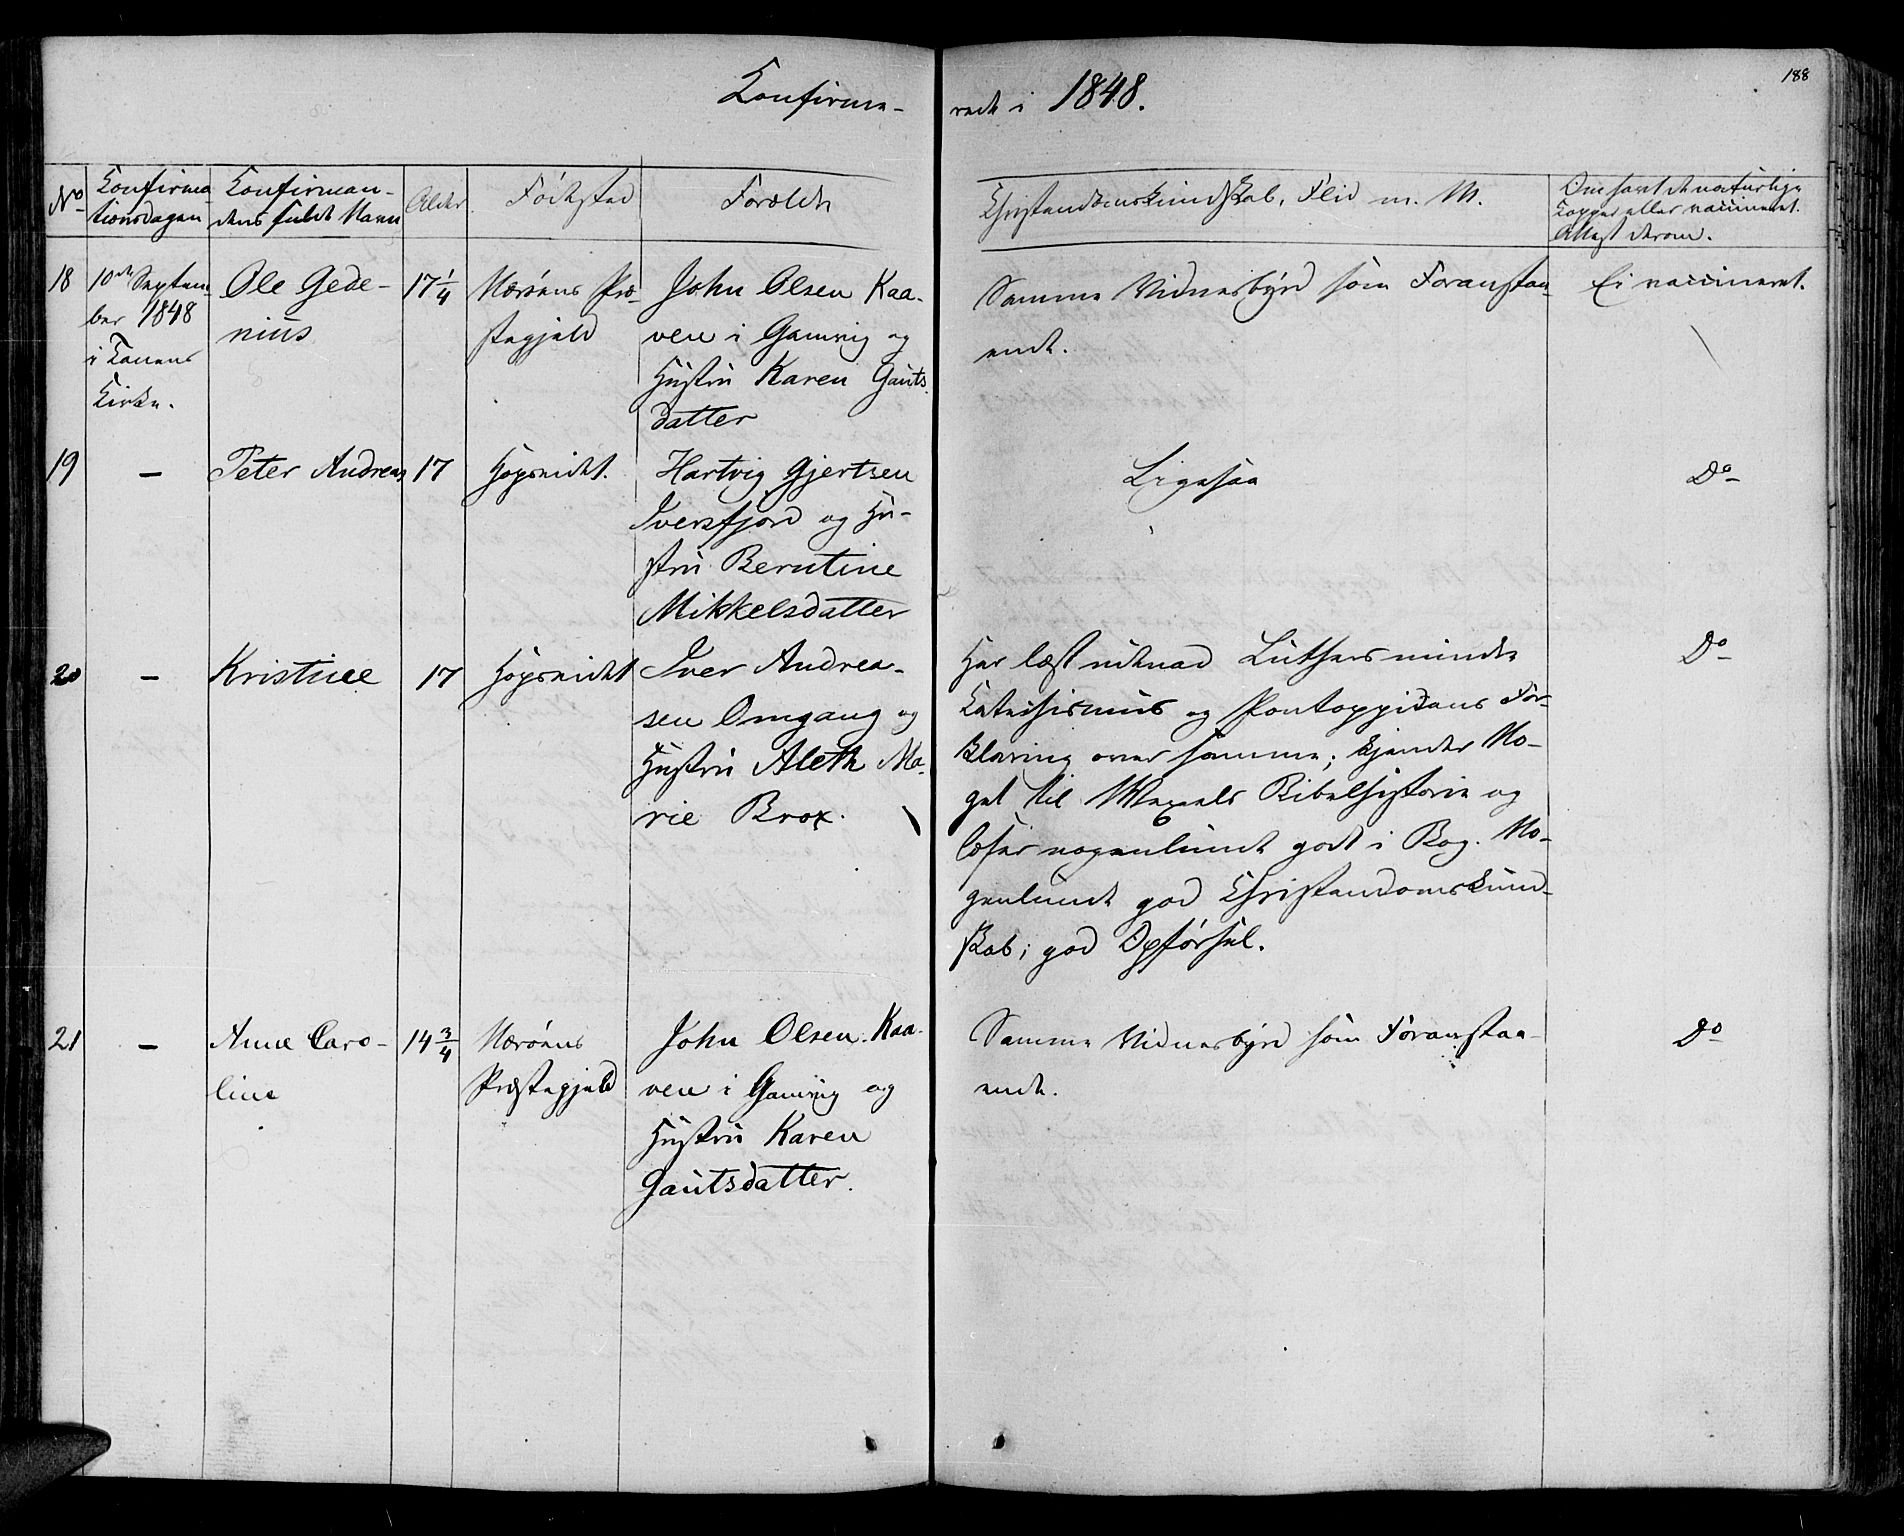 188
Confirme-
rede i 1848.
No
Confirma
tionsdagen
Confirman-
dens fulde Navn
Alder
Födested
Forældre
Christendomskundskab, Flid m. M.
Om havt de naturlige
Kopper eller vaccineret.
Attest derom.
18
10de Septem-
ber 1848
i Tanens
Kirke.
Ole Gede-
nius
17 1/4
Nærøens Præ-
stegjeld
John Olsen Kaa-
ven i Gamvig og
Hustru Karen Gauts-
datter
Samme Vidnesbyrd som Foranstaa-
ende.
Ei vaccineret.
19
-
Peter Andreas
17
Hopseidet.
Hartvig Gjertsen
Iversfjord og Hu-
stru Berntine
Mikkelsdatter
Ligesaa
Do
20
-
Kristine
17
Hopseidet
Iver Andrea-
sen Omgang og
Hustru Aleth Ma-
rie Brox.
Har læst udenad Luthers mindre
Katechismus og Pontoppidans For-
klaring over samme; kjender No-
get til Wexels Bibelhistorie og
læser nogenlunde godt i Bog. No-
genlunde god Christendomskund-
skab; god Opførsel.
Do
21
-
Anne Caro-
line
14 3/4
Nærøens
Præstegjeld
John Olsen Kaa-
ven i Gamvig og
Hustru Karen
Gautsdatter.
Samme Vidnesbyrd som Foranstaa-
ende.
Do